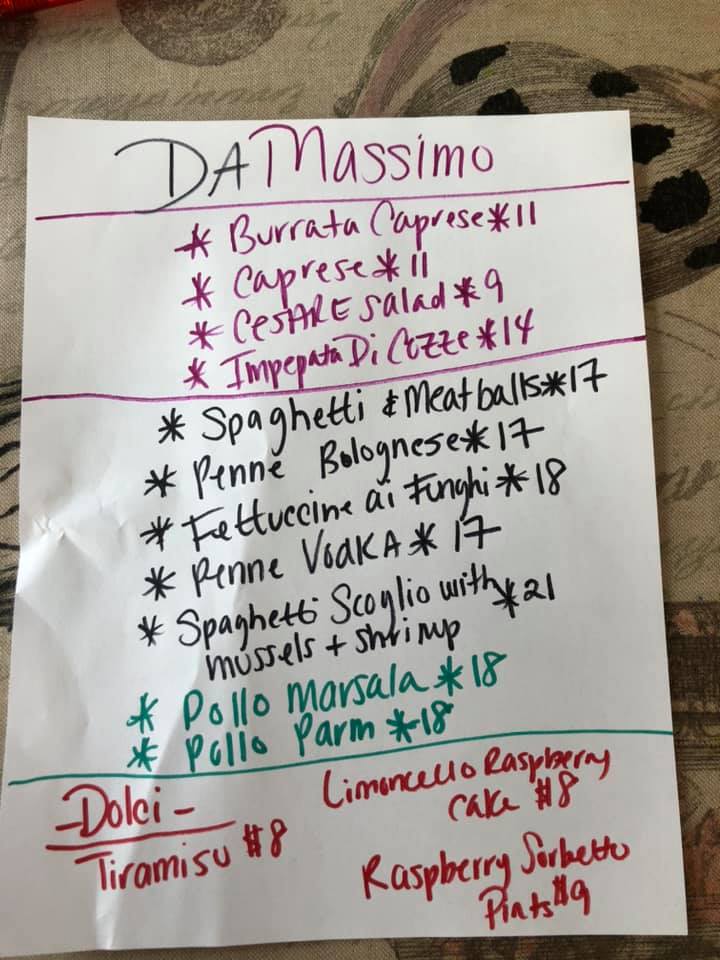 DA Massimo
* Burrata Caprese * 11
* Caprese * 11
* CesARE Salad * 9
* Impepata Di Cozze * 14
* Spaghetti & Meatballs * 17
* Penne Bolognese * 17
* Fettuccine ai Funghi * 18
* Penne VodKA * 17
* Spaghetti Scoglio with * 21
mussels + shrimp
* Pollo Marsala * 18
* Pollo Parm * 18
- Dolci -
Tiramisu #8
Limoncello Raspberry
Cake #8
Raspberry Sorbetto
Pints #9